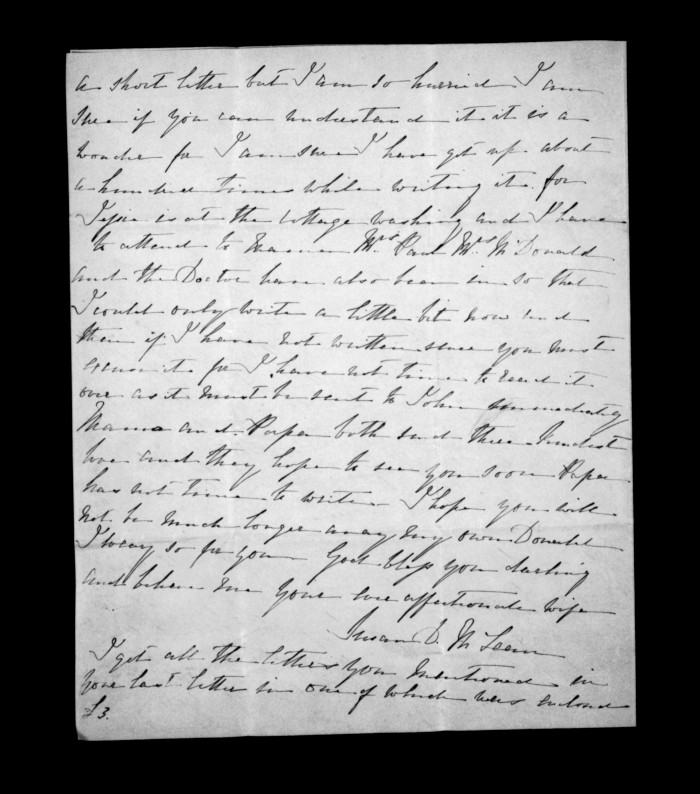 a short letter but I am so hurried I am
sure if you can understand it it is a
wonder for I am sure I have got up about
a hundred times while writing it for
Jessie is at the cottage washing and I have
to attend to Mama Mrs Paul Mrs McDonald
and the Doctor have also been in so that
I could only write a little bit now and
then if I have not written sense you must
excuse it for I have not time to read it
over as it must be sent to John immediately
Mama and Papa both send their kindest
love and they hope to see you soon Papa
has not time to write I hope you will
not be much longer away my own Donald
I weary so for you God bless you darling
and believe me your ever affectionate wife
Susan D. McLean
I got all the letters you mentioned in
your last letter in one of which was enclosed
£3.